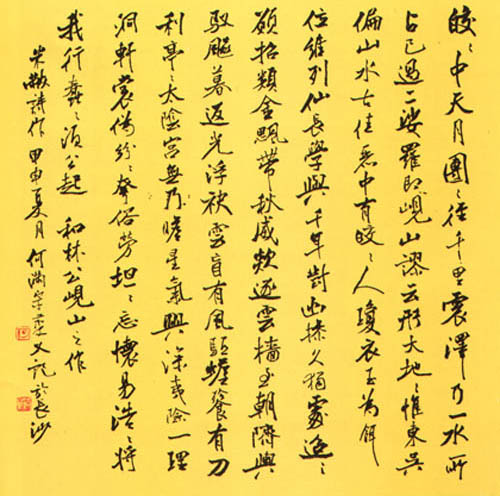 皎々中天月團々徑千里震澤乃一水所
占已過二娑羅即峴山謬云形大地々惟東吳
偏山水古佳麗中有皎々人瓊衣玉為餌
位維列仙長學與千年對幽操久獨處迢々
願招類金飔帶秋威欻逐雲檣至朝隮輿
馭飈暮返光浮袂雲盲有風驅蟾餮有刀
利亭々太陰宮無乃瞻星氣興深夷險一理
洞軒裳偽紛々夸俗勞坦々忘懷易浩々將
我行蠢々須公起 和林公峴山之作
米黻詩作 甲申夏月 何滿宗書又記於長沙